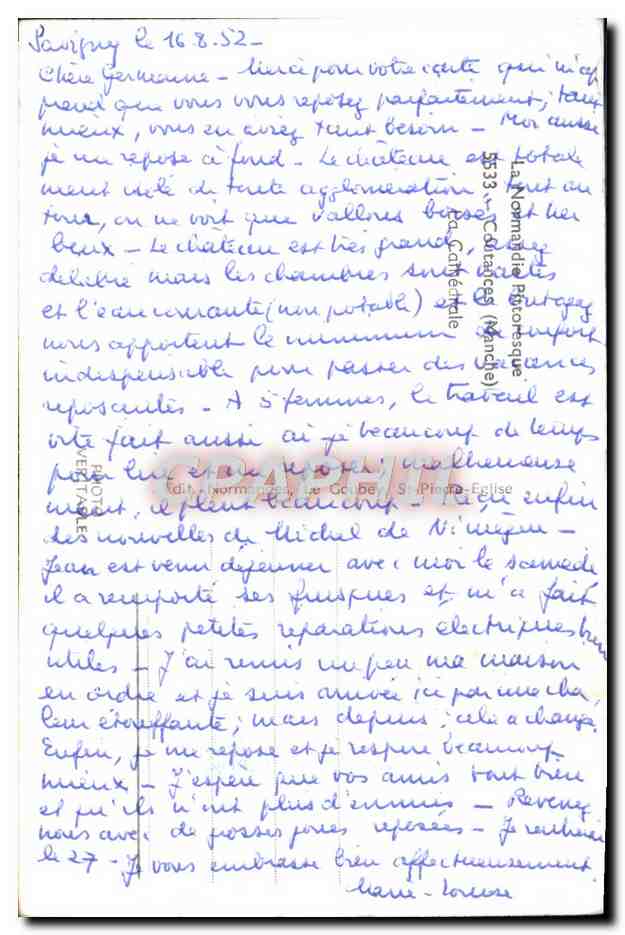 Savigny le 16.8.52 -
Chère Germaine - Merci pour votre carte qui m'ap
prend que vous vous reposez parfaitement; tant
mieux, vous en aviez tant besoin - Moi aussi
je me repose à fond - Le château est totale
ment isolé de toute agglomération - tout au
tour, on ne voit que vallons boisés et her
beux - Le château est très grand, assez
délabré mais les chambres sont vastes
et l'eau courante (non potable) et le butagaz
nous apportent le minimum de confort
indispensable pour passer des vacances
reposantes - A 5 femmes, le travail est
vite fait aussi ai-je beaucoup de temps
pour lire et me reposer; malheureuse
ment, il pleut beaucoup - Reçu enfin
des nouvelles de Michel de Nimègue -
Jean est venu déjeuner avec moi le samedi
il a remporté ses frusques et m'a fait
quelques petites réparations électriques bien
utiles - J'ai remis un peu ma maison
en ordre et je suis arrivée ici par une cha
leur étouffante; mais depuis, cela a changé.
Enfin, je me repose et je respire beaucoup
mieux - J'espère que vos amis vont bien
et qu'ils n'ont plus d'ennuis - Revenez
nous avec de grosses joues reposées - Je rentrerai
le 27 - Je vous embrasse bien affectueusement.
Marie-Louise
La Normandie Pittoresque
5533. - Coutances (Manche)
La Cathédrale
PHOTO
VERITABLE
Edit. Normandes, Le Goubey, St-Pierre-Eglise
CRAPHTI